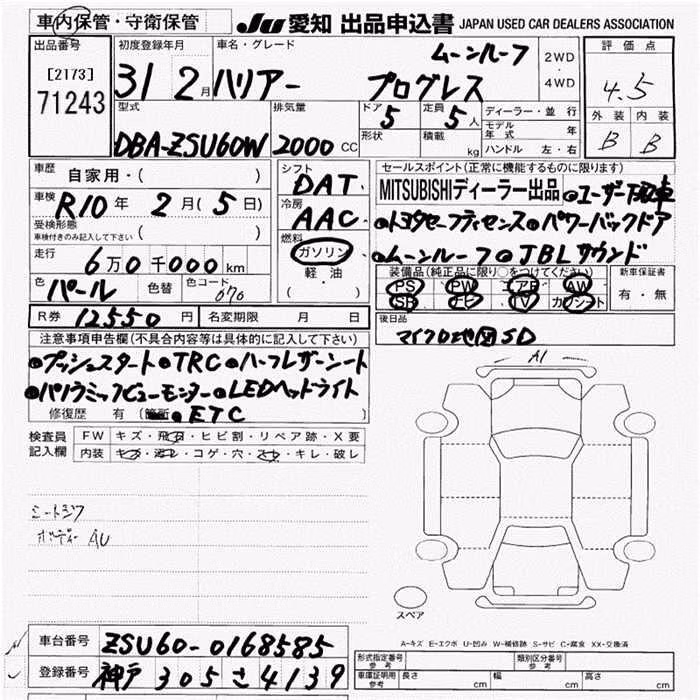 車内保管・守衛保管 JU 愛知 出品申込書 JAPAN USED CAR DEALERS ASSOCIATION
出品番号
[2173]
71243
初度登録年月
31 2月
車名・グレード
ハリアー プログレス
ムーンルーフ
2WD
4WD
評価点
4.5
外装 内装
B B
型式
DBA-ZSU60W
排気量
2000 CC
ドア
5
定員
5人
形状
積載
kg
ディーラー・並行
モデル年式 年
ハンドル 左・右
車歴 自家用・( )
車検 R10年 2月(5日)
受検形態
車検付きのみ記入して下さい ( )
走行 6万0千000km
色 パール 色替 色コード 070
シフト
DAT
冷房
AAC
燃料
ガソリン
軽・油
( ・ )
セールスポイント(正常に機能するものに限ります)
MITSUBISHIディーラー出品 ●ユーザー下取車
●トヨタセーフティセンス●パワーバックドア
●ムーンルーフ●JBLサウンド
装備品(純正品に限り○をつけてください)
PS PW エアB AW
SR ナビ TV カワシート
新車保証書
有・無
R券 12550円 名変期限 月 日
後日品
マイクロ地図SD
注意事項申告欄(不具合内容等は具体的に記入して下さい)
●プッシュスタート●TRC●ハーフレザーシート
●パノラミックビューモニター●LEDヘッドライト
修復歴 有 (箇所 ●ETC )
検査員記入欄
FW キズ・飛石・ヒビ割・リペア跡・X要
内装 キズ・汚レ・コゲ・穴・スレ・キレ・破レ
A1
シートシワ
ボディー AU
スペア
A-キズ E-エクボ U-凹み W-補修跡 S-サビ C-腐食 XX-交換済
車台番号 ZSU60-0168585
登録番号 神戸 305 さ 4139
形式指定番号
参考
類別区分番号
参考
車庫証明用
参考
長さ cm 幅 cm 高さ cm